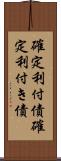 確定利付債確
定利付き債